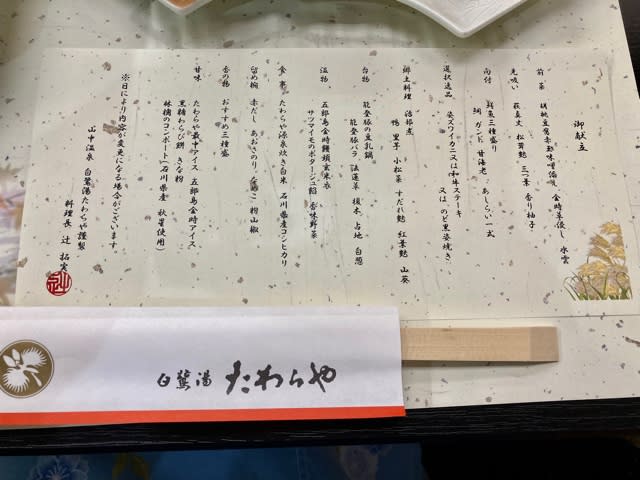 御献立
前菜 胡桃豆腐
先吸い 萩真丈 松茸麩 三つ葉 香り柚子
向付 鮮魚三種盛り
鰤 ガンド 甘海老 あしらい一式
選択逸品 姿ズワイカニ又は和牛ステーキ
又は のど黒姿焼き
郷土料理 治部煮
鴨 里子 小松菜 すだれ麩 紅葉麩 山葵
台物 能登豚の豆乳鍋
能登豚バラ 法蓮草 榎木 占地 白葱
温物 五郎島金時饅頭玄米衣
サツマイモのポタージュ餡 香味野菜
食事 たわらや源泉炊き白米 石川県産コシヒカリ
留め椀 赤だし あおさのり なめこ 粉山椒
香の物 おすすめ三種盛
甘味 たわらや最中アイス 五郎島金時アイス
黒糖わらび餅 きな粉
林檎のコンポート(石川県産 秋星使用)
※日により内容が変更になる場合がございます
山中温泉 白鷺湯たわらや謹製
料理長 辻 拓実
白鷺湯 たわらや